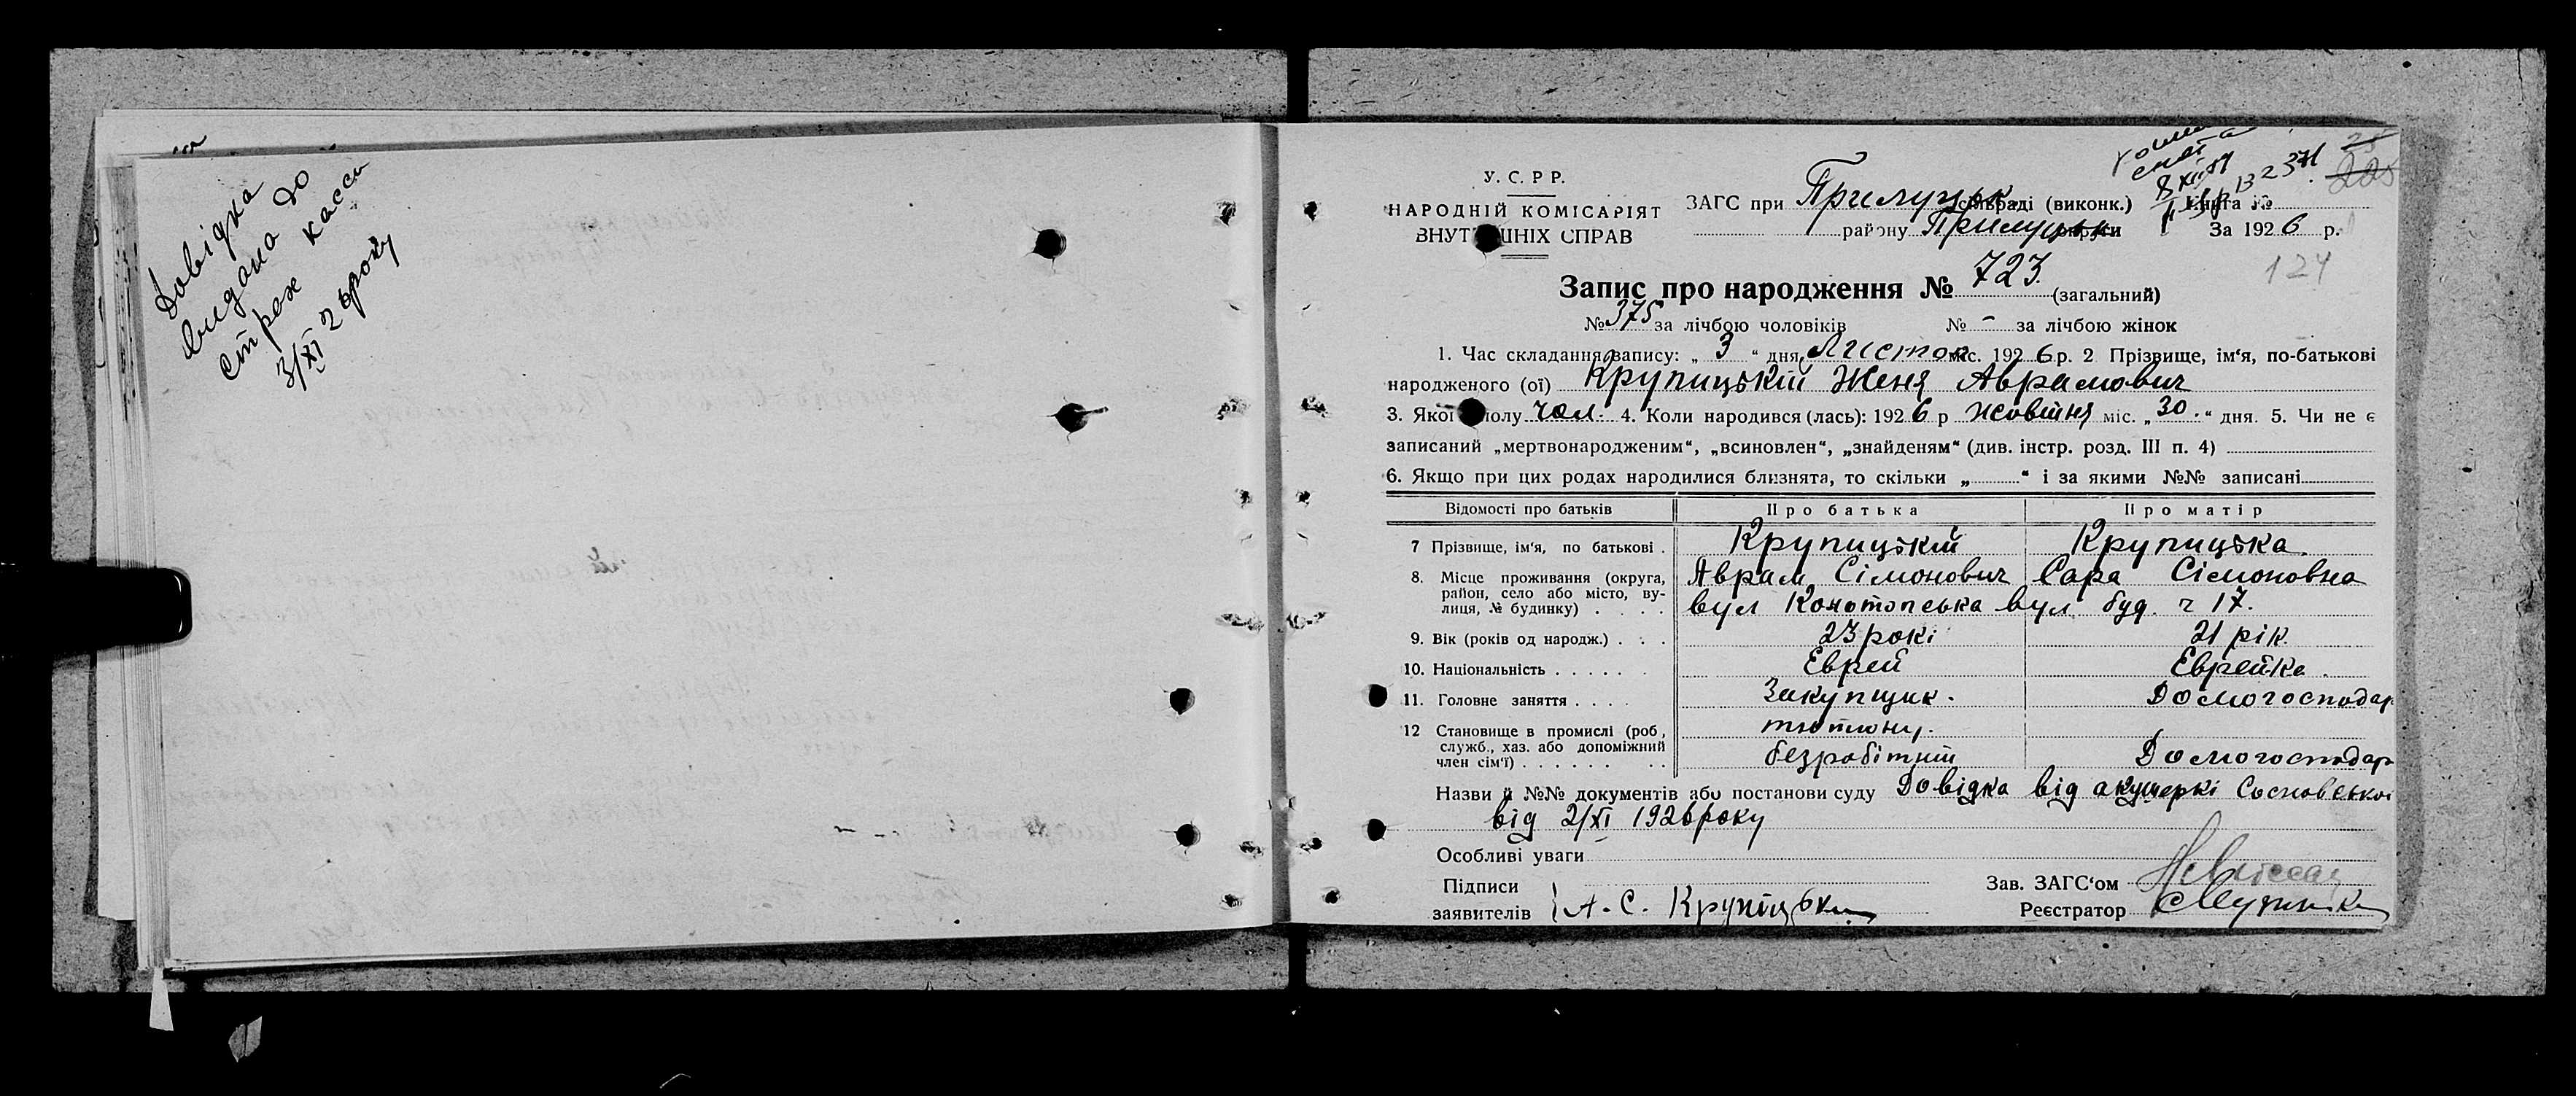 Довідка
видана до
страх касси
3/XI 26 року
У. С. Р Р.
НАРОДНІЙ КОМІСАРІЯТ
ВНУТ ШНІХ СПРАВ
ЗАГС при Прилуцьк. сільраді (виконк.) Книга №
району Прилуцьк округи За 1926 р.
124
Запис про народження № 723. (загальний)
№ 375 за лічбою чоловіків № – за лічбою жінок
1. Час складання запису: „ 3 “ дня Листоп міс. 1926 р. 2 Прізвище, ім‘я, по-батькові
народженого (ої) Крупицький Женя Аврамович
3. Якої полу чол. 4. Коли народився (лась): 1926 р жовтня міс. „ 30. “ дня. 5. Чи не є
записаний „мертвонародженим“, „всиновлен“, „знайденям“ (див. інстр. розд. III п. 4)
6. Якщо при цих родах народилися близнята, то скільки „ “ і за якими №№ записані
Відомості про батьків Про батька Про матір
7 Прізвище, ім‘я, по батькові . Крупицький Крупицька.
8. Місце проживання (округа, район, село або місто, вулиця, № будинку) . . . . Аврам Сімонович Сара Сімоновна
вул Конотопська вул буд. ч 17.
9. Вік (років од народж.) . . . 23 рокі 21 рік.
10. Національність . . . . . . Еврей Еврейка.
11. Головне заняття . . . . Закупщик. Домогосподар
тютюну.
12 Становище в промислі (роб, служб., хаз. або допоміжний член сім‘ї) . . . . . . . . безробітний Домогосподар
Назви й №№ документів або постанови суду Довідка від акушеркі Сосновської
від 2/XI 1926 року
Особливі уваги
Підписи
заявителів А. С. Крупіцьки
Зав. ЗАГС‘ом
Реєстратор